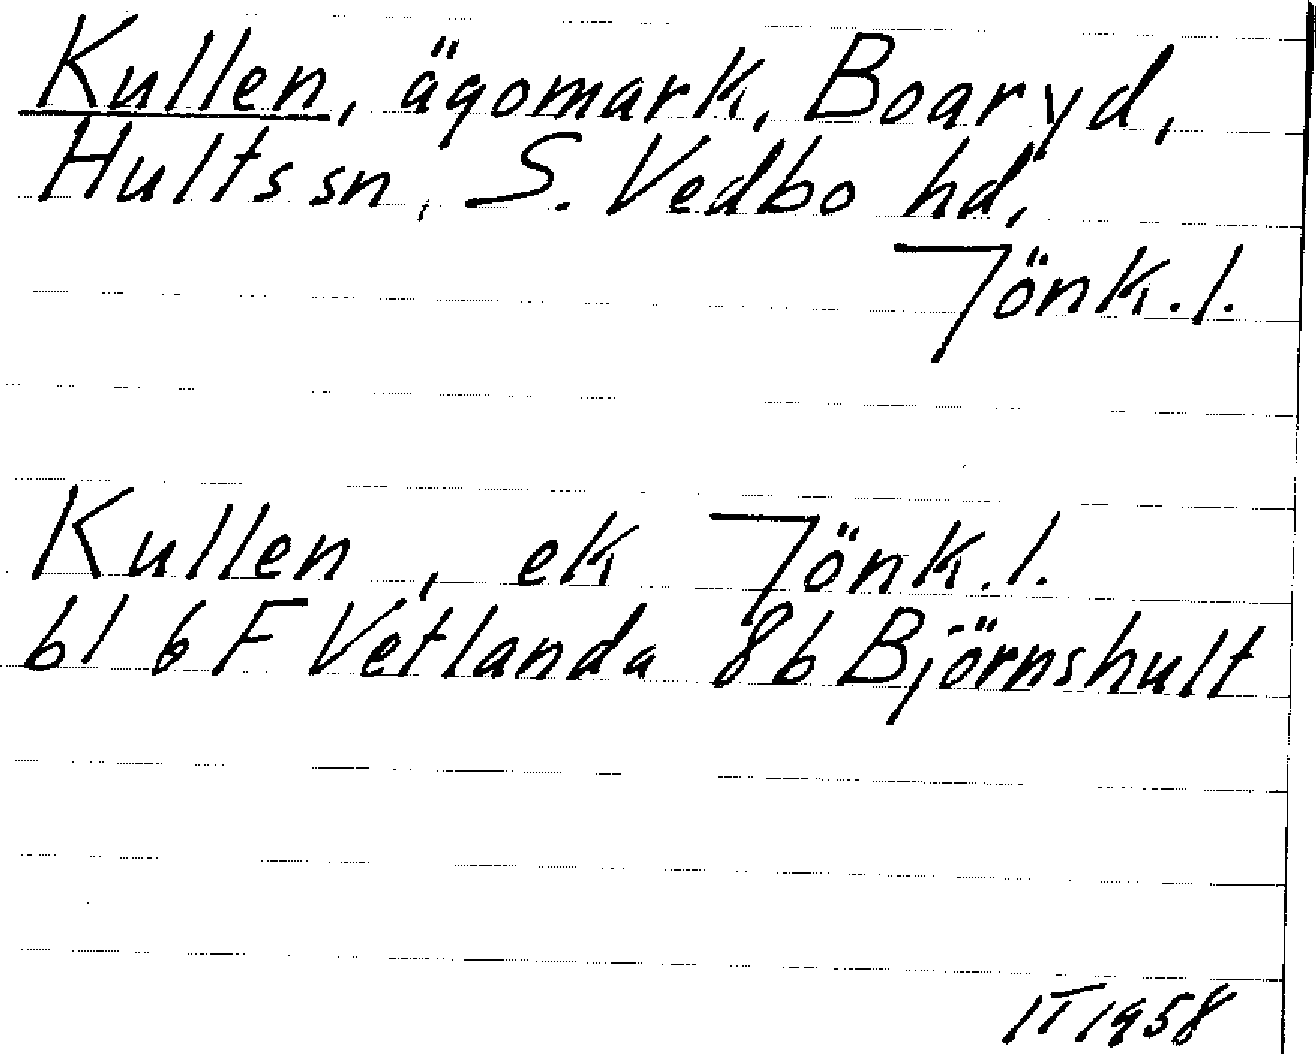 Kullen, ägomark, Boaryd,
Hults sn, S. Vedbo hd,
Jönk.l.
Kullen, ek Jönk.l.
bl 6 F Vetlanda 8b Björnshult
IT 1958